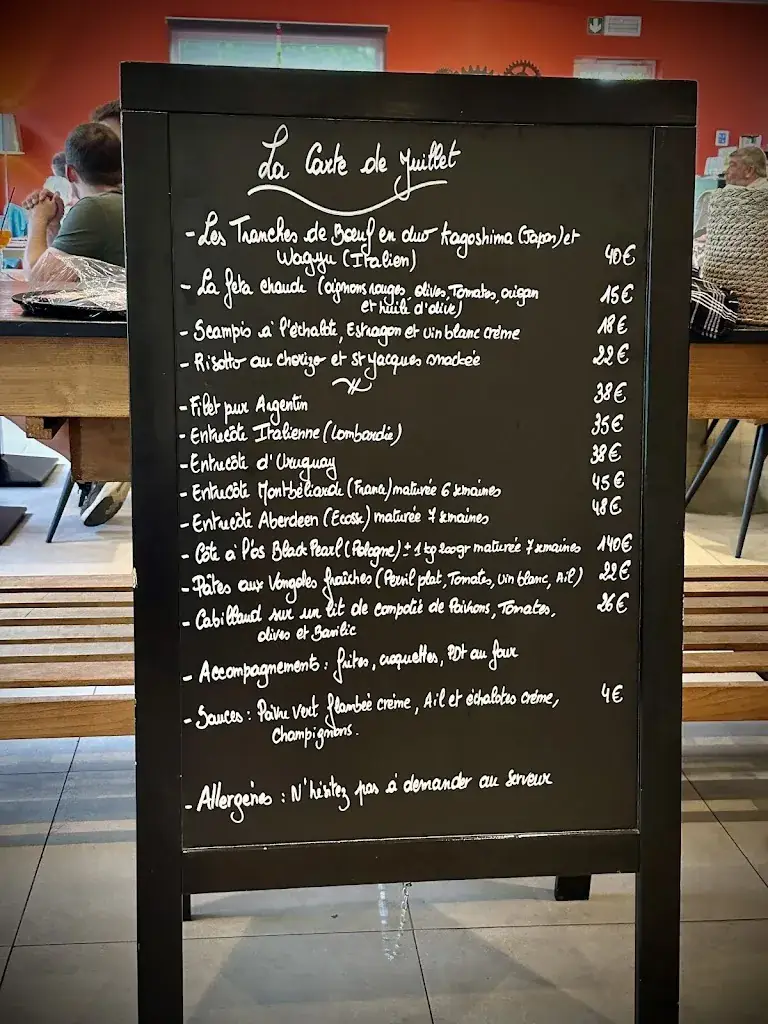 La Carte de Juillet
- Les Tranches de Bœuf en duo Kagoshima (Japon) et
Wagyu (Italien) 40€
- La feta chaude (oignons rouges, olives, Tomates, origan
et huile d'olive) 15€
- Scampis à l'échalote, Estragon et vin blanc crème 18€
- Risotto au chorizo et St Jacques snackée 22€
- Filet pur Argentin 38€
- Entrecôte Italienne (Lombardie) 35€
- Entrecôte d'Uruguay 38€
- Entrecôte Montbéliarde (France) maturée 6 semaines 45€
- Entrecôte Aberdeen (Ecosse) maturée 7 semaines 48€
- Côte à l'os Black Pearl (Pologne) ± 1 kg 200gr maturée 7 semaines 140€
- Pâtes aux Vongoles fraîches (Persil plat, Tomates, vin blanc, Ail) 22€
- Cabillaud sur un lit de compotée de Poivrons, Tomates, 26€
olives et Basilic
- Accompagnements : frites, croquettes, PDt au four
- Sauces : Poivre Vert flambée crème, Ail et échalotes crème, 4€
Champignons.
- Allergènes : N'hésitez pas à demander au Serveur